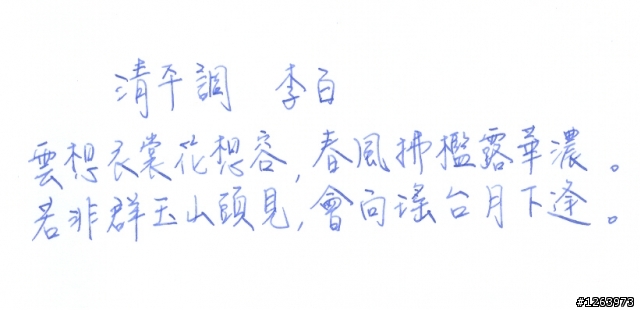 清平調 李白
雲想衣裳花想容,春風拂檻露華濃。
若非群玉山頭見,會向瑤台月下逢。
#1263973